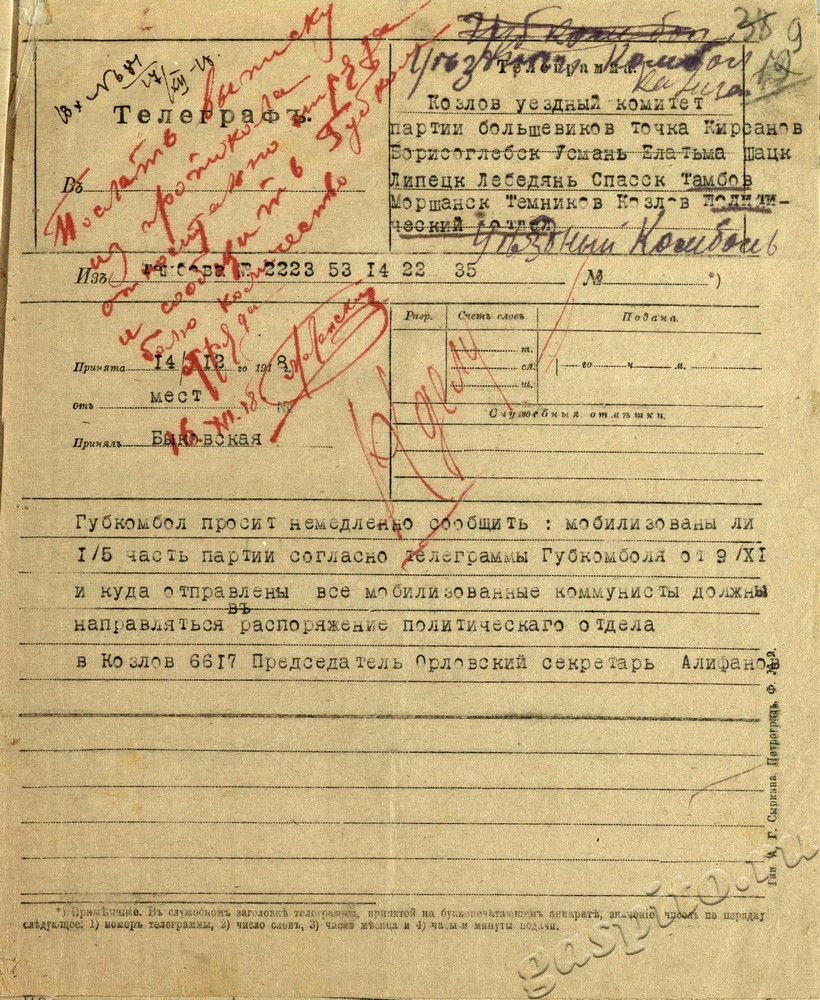 38 9
19
Губкомбол
Уѣздный Комбол
Вх № 681
17/XII-18.
Телеграмма.
Телеграфъ.
Козлов уездный комитет
партии большевиков точка Кирсанов
Борисоглебск Усмань Елатьма Шацк
Липецк Лебедянь Спасск Тамбов
Моршанск Темников Козлов Полити-
ческий отдел
Уѣздный Комболь
Въ
Послать выписку
из протокола
относительно отряда
и сообщить в Губком
бол количество
отряда
16-XII-18
Изъ Тамбова № 2223 53 14 22 35 № *)
Разр. Счетъ словъ Подана.
т.
сл.
ш.
го ч. м.
Служебныя отмѣтки.
К делу
Принята 14/12 го 1918 г.
отъ мест №
Принялъ Быковская
Губкомбол просит немедленно сообщить : мобилизованы ли
I/5 часть партии согласно телеграммы Губкомболя от 9/XI
и куда отправлены все мобилизованные коммунисты должны
въ
направляться распоряжение политическаго отдела
в Козлов 6617 Председатель Орловский секретарь Алифанов
Тип. А. Г. Сыркина. Петроградъ. Ф. № 2.
*) Примѣчаніе. Въ служебномъ заголовкѣ телеграммы, принятой на буквопечатающемъ аппаратѣ, значеніе чиселъ по порядку
слѣдующее: 1) номеръ телеграммы, 2) число словъ, 3) число мѣсяца и 4) часы и минуты подачи.
gaspito.ru